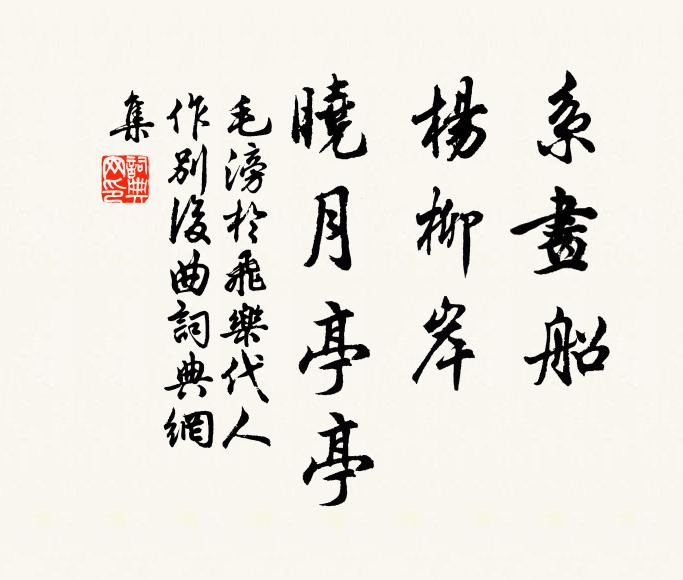 系畫船
楊柳岸
曉月亭亭
毛滂於飛樂代人
作別後曲詞典網
集
詞典
网印